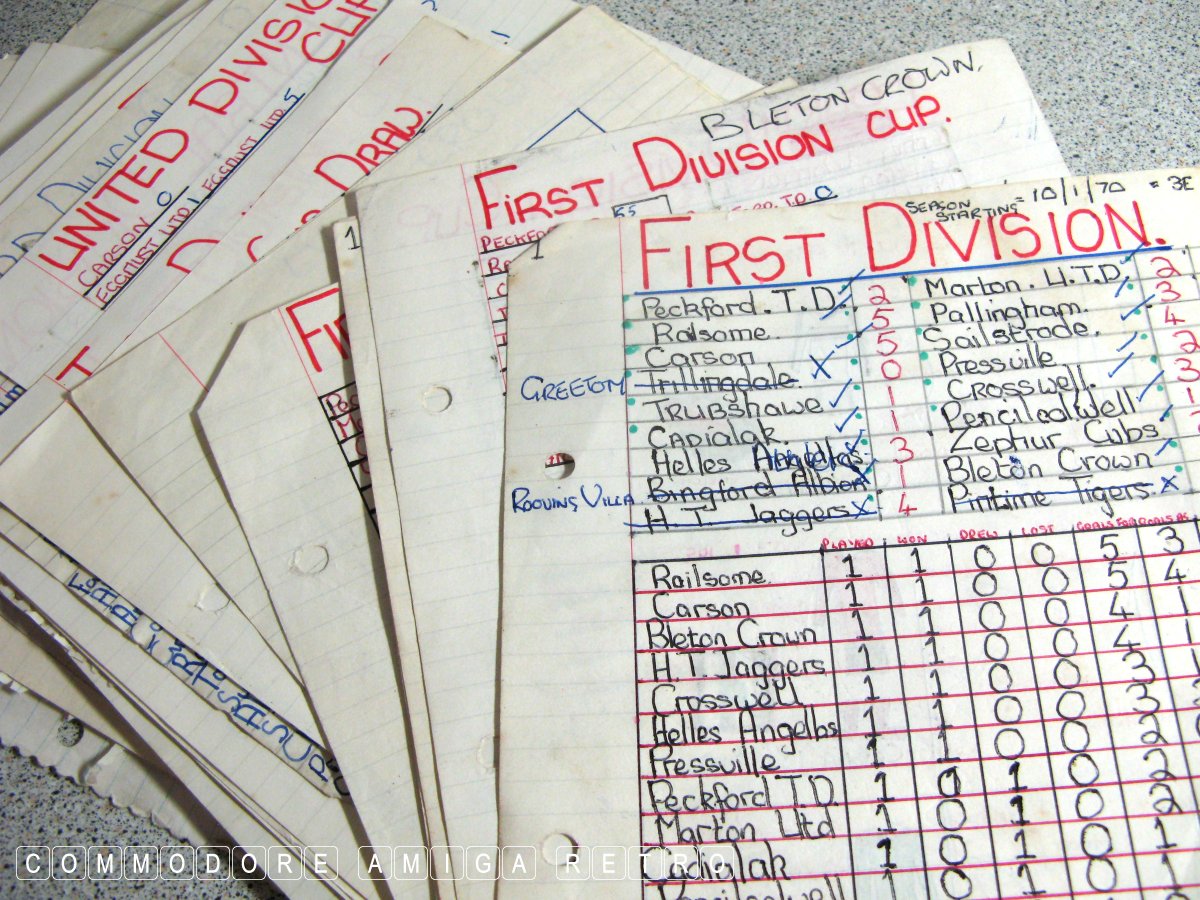 UNITED DIVISION
CUP
CARSON 0
EGGMIST LTD 1 EGGMIST LTD 5
DIVISION
DRAW.
BLETON CROWN.
FIRST DIVISION CUP.
SEASON STARTING = 10/1/70 = 3E
1 FIRST DIVISION.
Peckford. T.D. 2 Marton. U.T.D. 2
Ralsome. 5 Pallingham. 3
Carson 5 Sailstrode. 4
GREETOM Trillingdale. X 0 Pressville 2
TRUBSHAWE 1 Crosswell. 3
CADIALAK. 1 Pencilcolwell 1
Helles Angelos 3 Zephur Cubs.
Bingford Albion 1 Bleton Crown
ROOVINS VILLA
H.T. Jaggers X 4 Pintime Tigers. X
PLAYED WON DREW LOST GOALS FOR GOALS
Railsome. 1 1 0 0 5 3
Carson 1 1 0 0 5 4
Bleton Crown 1 1 0 0 4 1
H.T. Jaggers 1 1 0 0 4 1
Crosswell 1 1 0 0 3
Helles Angelbs 1 1 0 0 3
Pressville 1 1 0 0 2
Peckford T.D. 1 0 1 0 2
Marton Utd 1 0 1 0 2
Cadialak 1 0 1 0 1
1 0 1 0 1
COMMODORE AMIGA RETRO